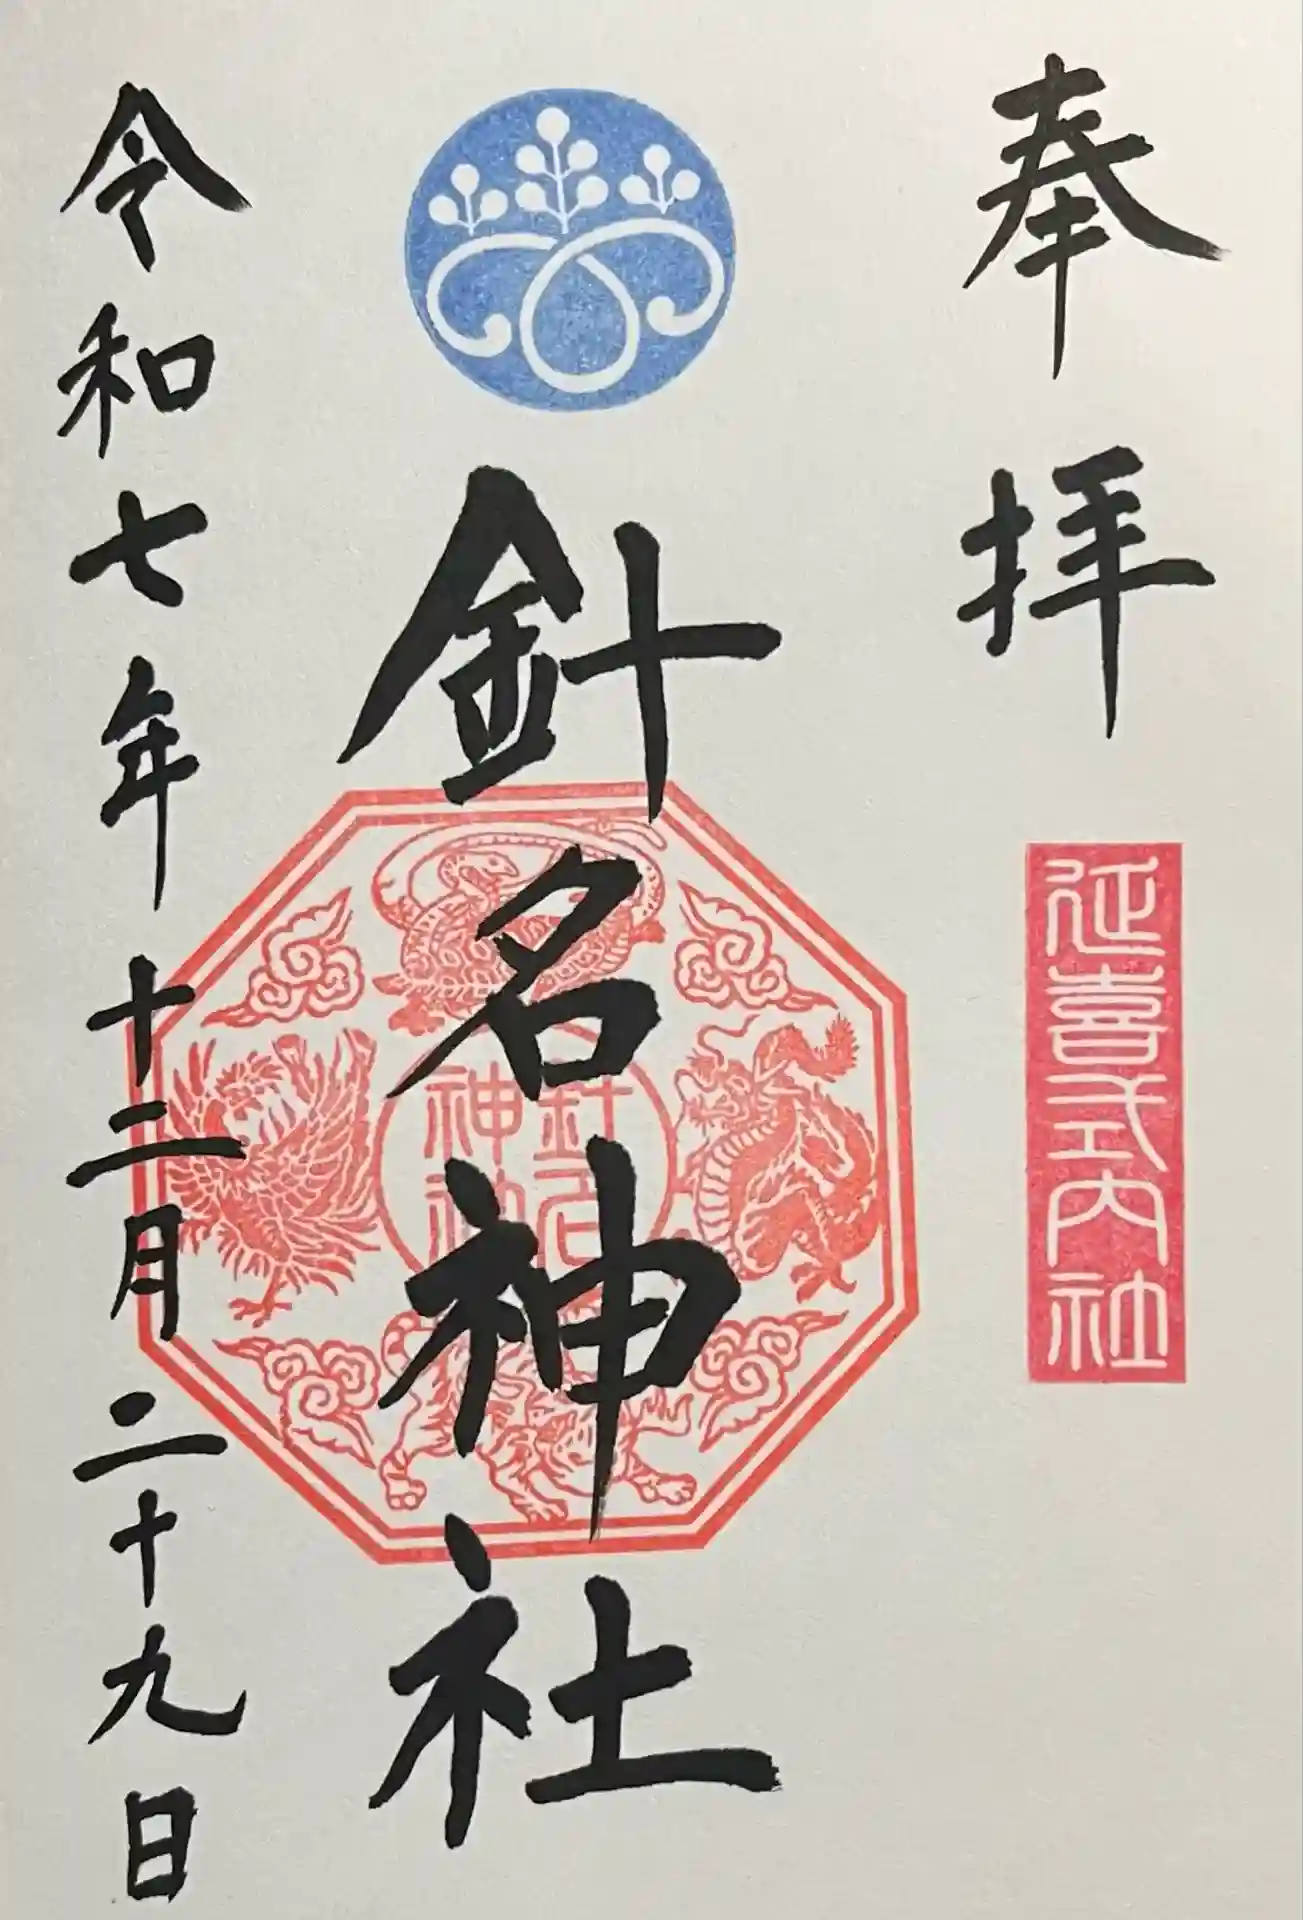 奉拝
延喜式内社
針名神社
針名
神社
令和七年十二月二十九日